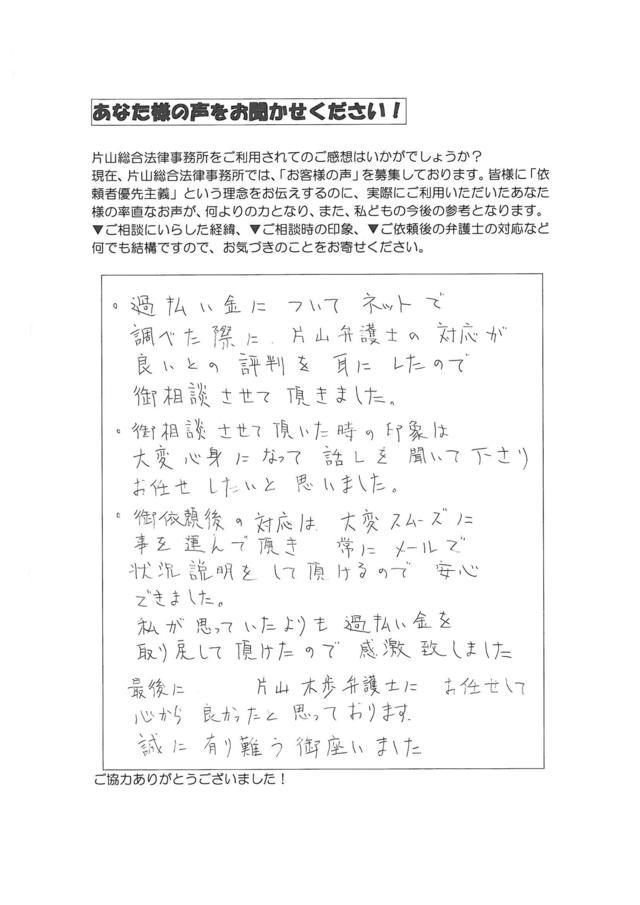 あなた様の声をお聞かせください！
片山総合法律事務所をご利用されてのご感想はいかがでしょうか？
現在、片山総合法律事務所では、「お客様の声」を募集しております。皆様に「依
頼者優先主義」という理念をお伝えするのに、実際にご利用いただいたあなた
様の率直なお声が、何よりの力となり、また、私どもの今後の参考となります。
▼ご相談にいらした経緯、▼ご相談時の印象、▼ご依頼後の弁護士の対応など
何でも結構ですので、お気づきのことをお寄せください。
。過払い金について ネットで
調べた際に、片山弁護士の対応が
良いとの評判を耳にしたので
御相談させて頂きました。
。御相談させて頂いた時の印象は
大変心身になって話しを聞いて下さり
お任せしたいと思いました。
。御依頼後の対応は、大変スムーズに
事を運んで頂き 常にメールで
状況説明をして頂けるので 安心
できました。
私が思っていたよりも過払い金を
取り戻して頂けたので 感激致しました
最後に 片山木歩弁護士に お任せして
心から良かったと思っております。
誠に有り難う御座いました
ご協力ありがとうございました！